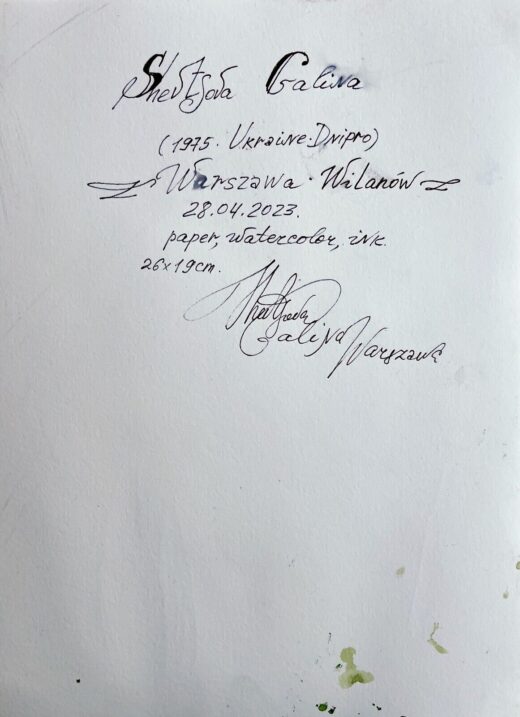 Shevtsova Galina
(1975. Ukraine. Dnipro)
Warszawa. Wilanów
28.04.2023.
paper, watercolor, ink.
26x19cm.
Shevtsova
Galina Warszawa